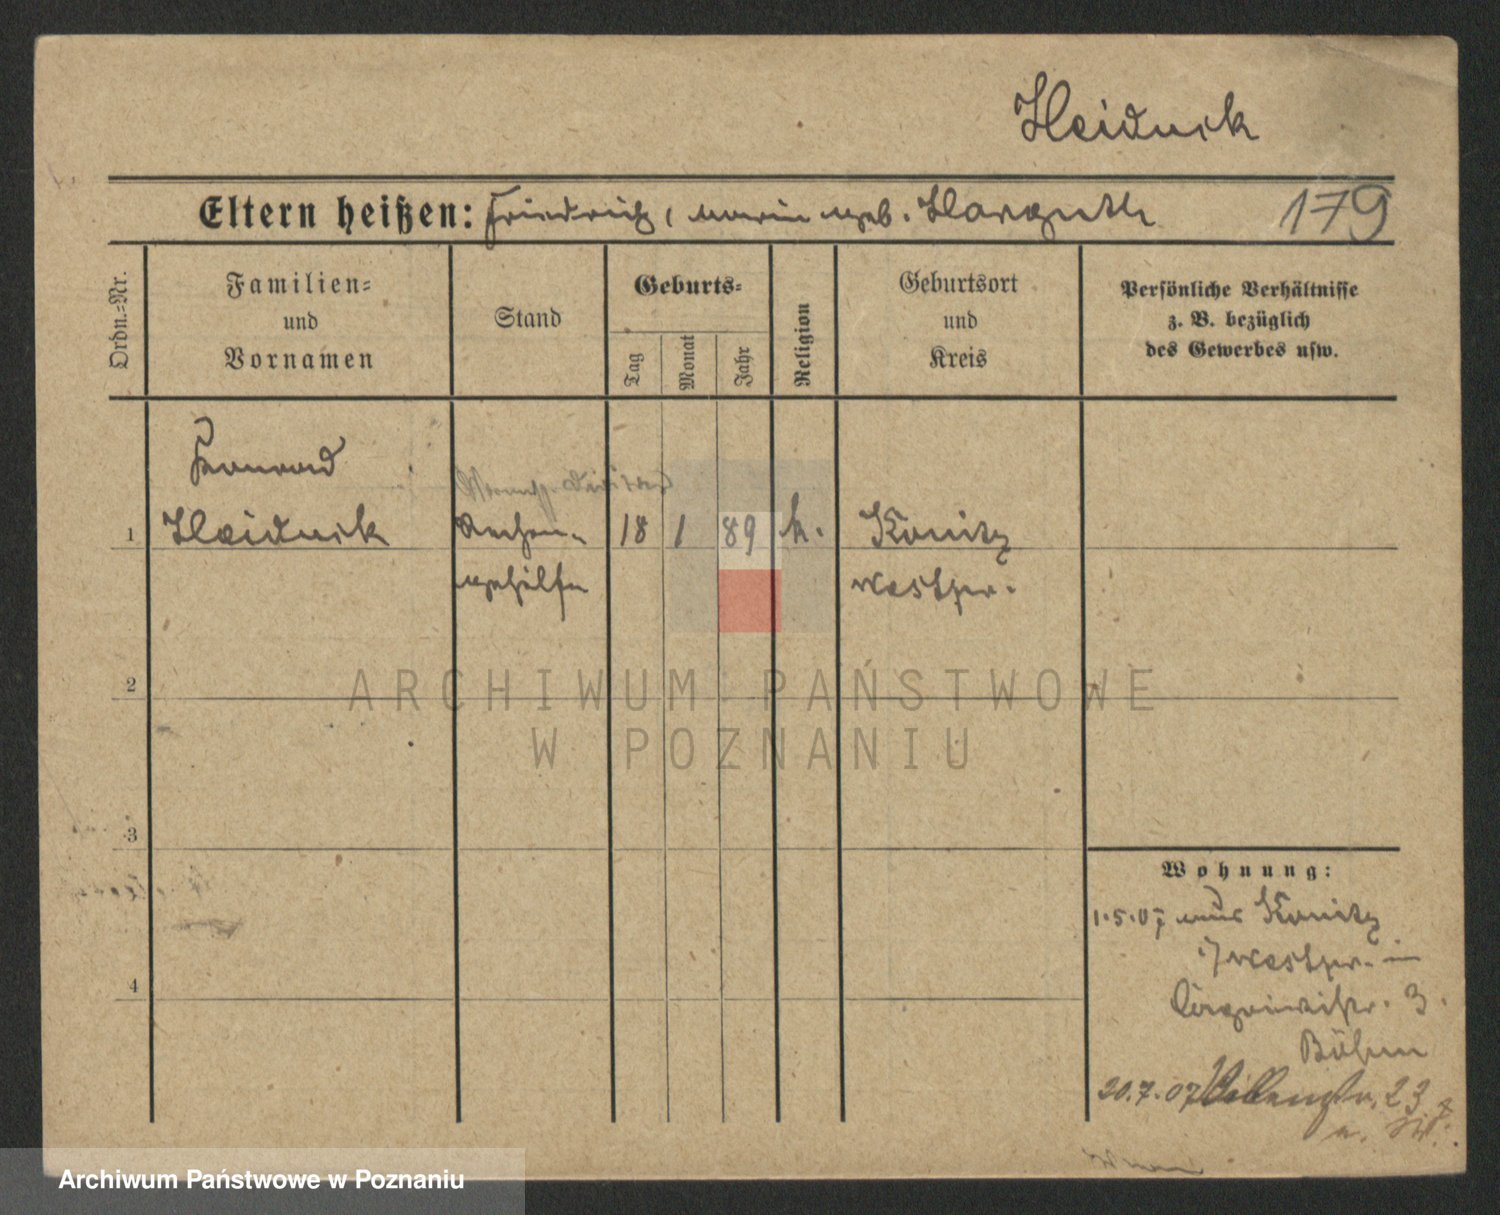 Heidnik
Eltern heißen: Friedrich, Marie geb. Harguth 179
Ordn.=Nr.
Familien=
und
Vornamen
Stand
Geburts=
Tag
Monat
Jahr
Religion
Geburtsort
und
Kreis
Persönliche Verhältnisse
z. B. bezüglich
des Gewerbes usw.
Konrad
1 Heidnik 18 1 89 k. Konitz
gehilfe Westpr.
2
ARCHIWUM PAŃSTWOWE
W POZNANIU
3
Wohnung:
1.5.07 aus Konitz
Westpr. in
3.
4
Böhm
20.7.07 23
Archiwum Państwowe w Poznaniu